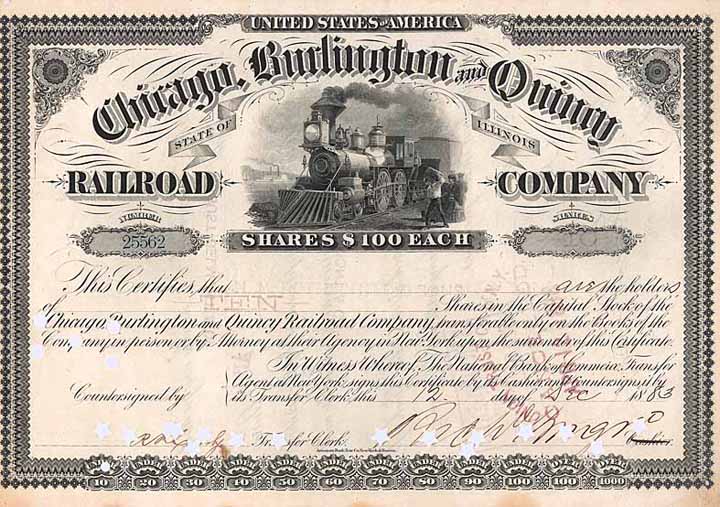 UNITED STATES OF AMERICA
Chicago, Burlington and Quincy
STATE OF ILLINOIS
RAILROAD COMPANY
NUMBER
SHARES
25562
SHARES $100 EACH
This Certifies, that are the holders
of Shares in the Capital Stock of the
Chicago Burlington and Quincy Railroad Company, transferable only on the Books of the
Company in person or by Attorney at their Agency in New York upon the surrender of this Certificate.
In Witness Whereof, The National Bank of Commerce, Transfer
Agent at New York, signs this Certificate by its Cashier and countersigns it by
its Transfer Clerk this 12 day of Dec 1883
Countersigned by
Transfer Clerk.
Cashier.
UNDER 10 UNDER 20 UNDER 30 UNDER 40 UNDER 50 UNDER 60 UNDER 70 UNDER 80 UNDER 90 UNDER 100 UNDER 100 OVER 100 OVER 1000